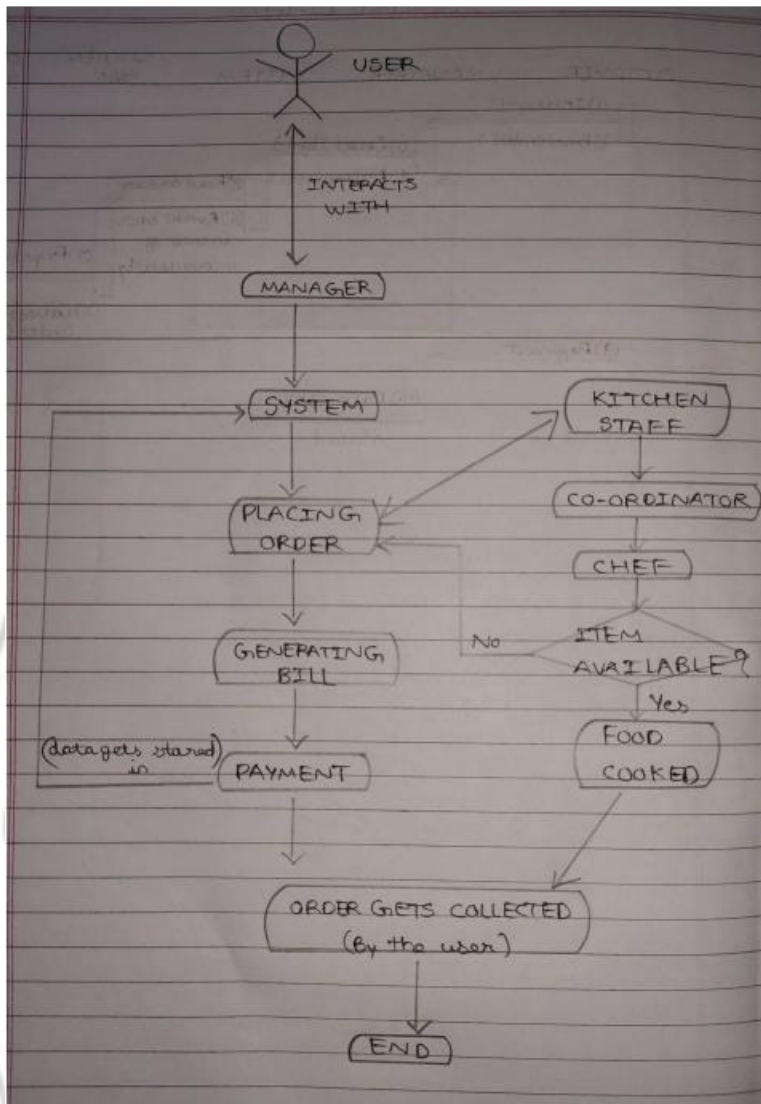 USER
INTERACTS
WITH
MANAGER
SYSTEM
KITCHEN
STAFF
PLACING
ORDER
CO-ORDINATOR
CHEF
No
ITEM
AVAILABLE?
GENERATING
BILL
Yes
(data gets stored)
in
PAYMENT
FOOD
COOKED
ORDER GETS COLLECTED
(By the user)
END